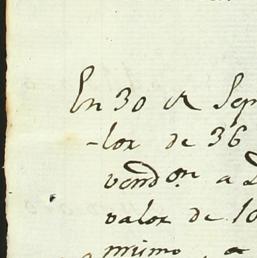 En 30 de Sep
-lor de 36
vendon. a D
valor de 10
mimo, a